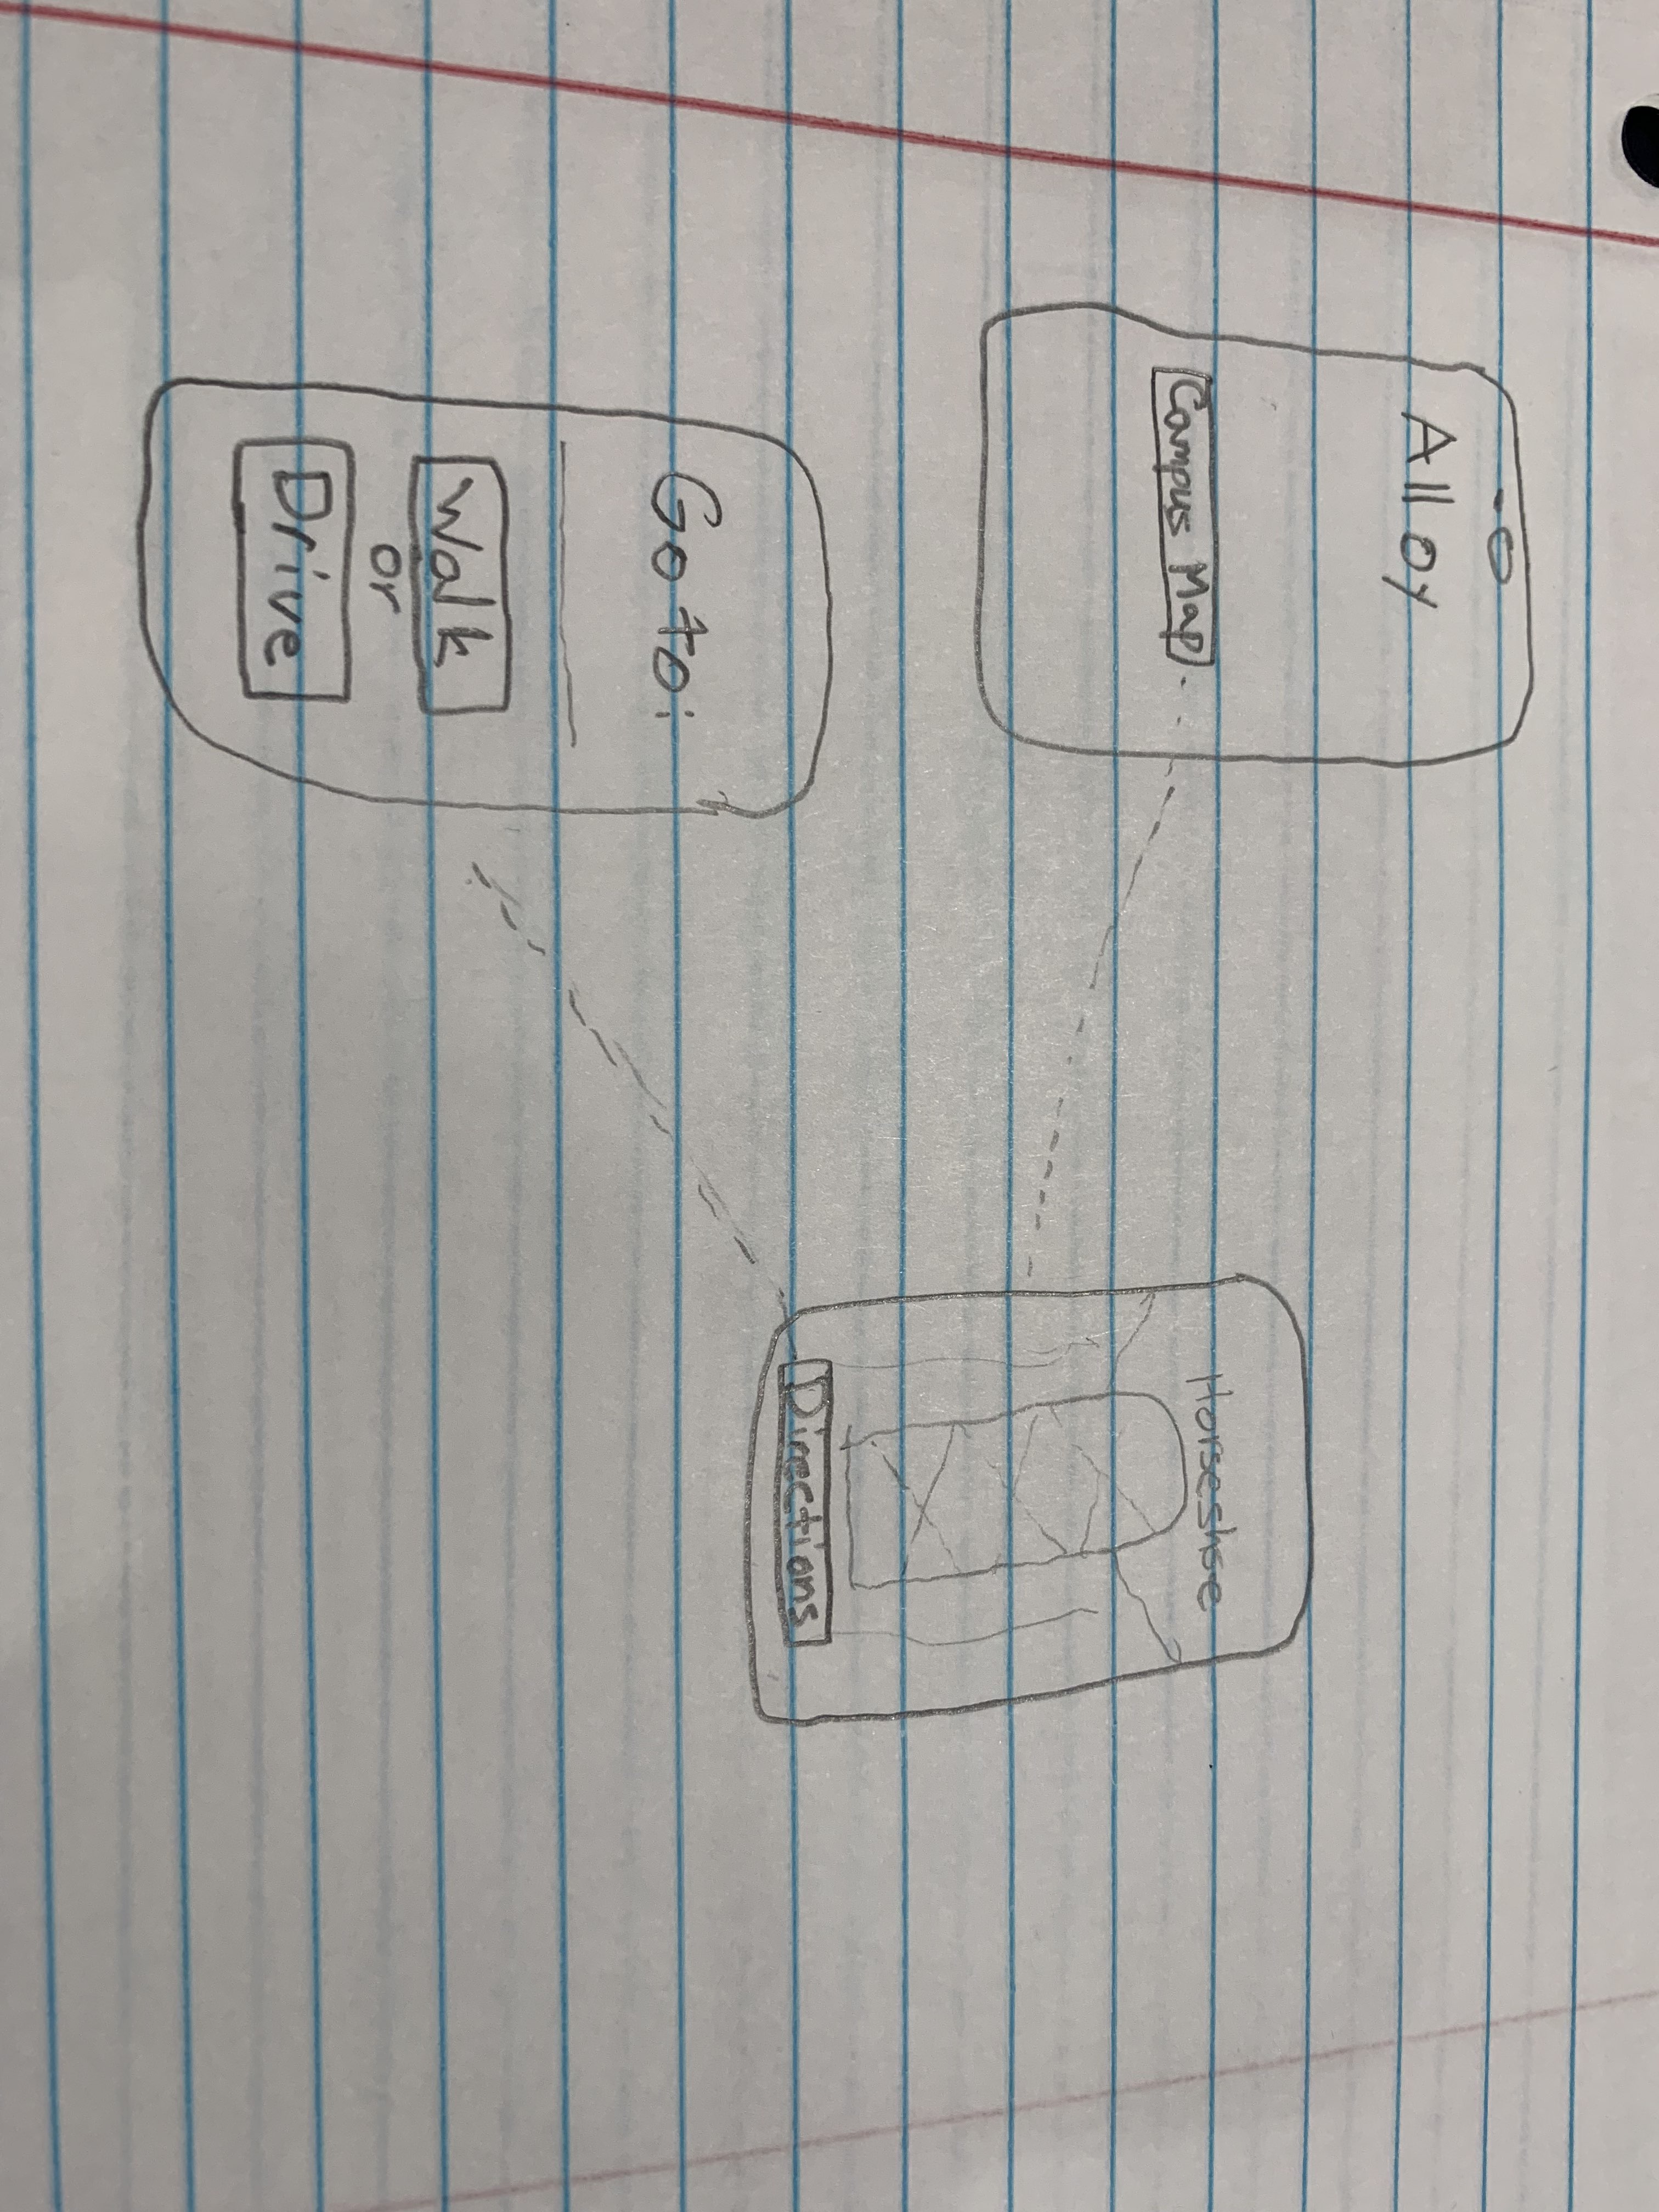 Alloy
Campus Map
Horseshoe
Directions
Go to:
Walk
or
Drive